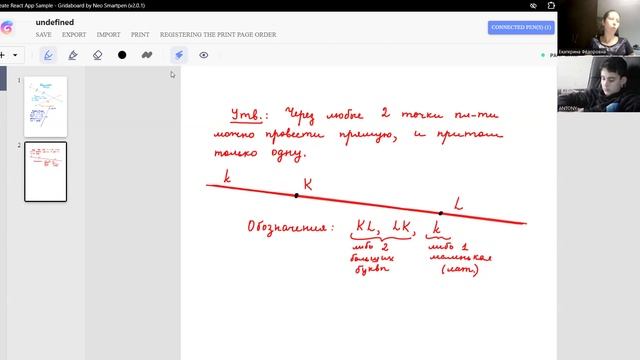 eate React App Sample - Gridaboard by Neo Smartpen (v2.0.1)
undefined
SAVE EXPORT IMPORT PRINT REGISTERING THE PRINT PAGE ORDER
CONNECTED PEN(S) (1)
Екатерина Фёдоровна
ANTONY
1
2
Утв.: Через любые 2 точки пл-ти
можно провести прямую, и притом
только одну.
k K L
Обозначения: KL, LK, k
либо 2 либо 1
больших маленькая
букв (лат.)